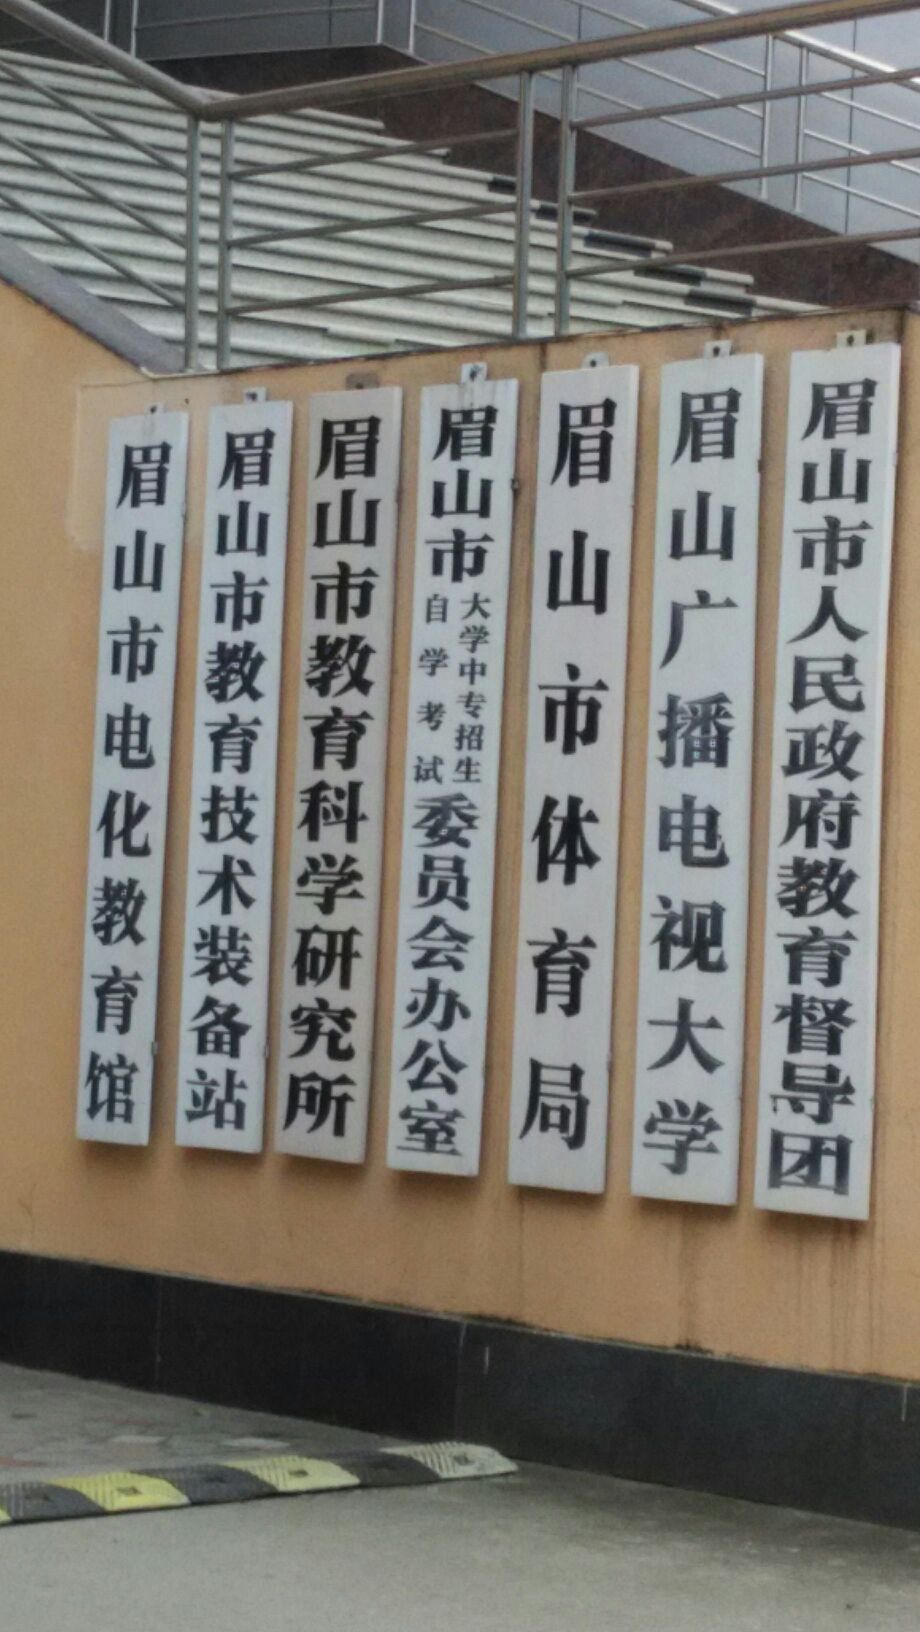 眉山市电化教育馆
眉山市教育技术装备站
眉山市教育科学研究所
眉山市大学中专招生自学考试委员会办公室
眉山市体育局
眉山广播电视大学
眉山市人民政府教育督导团